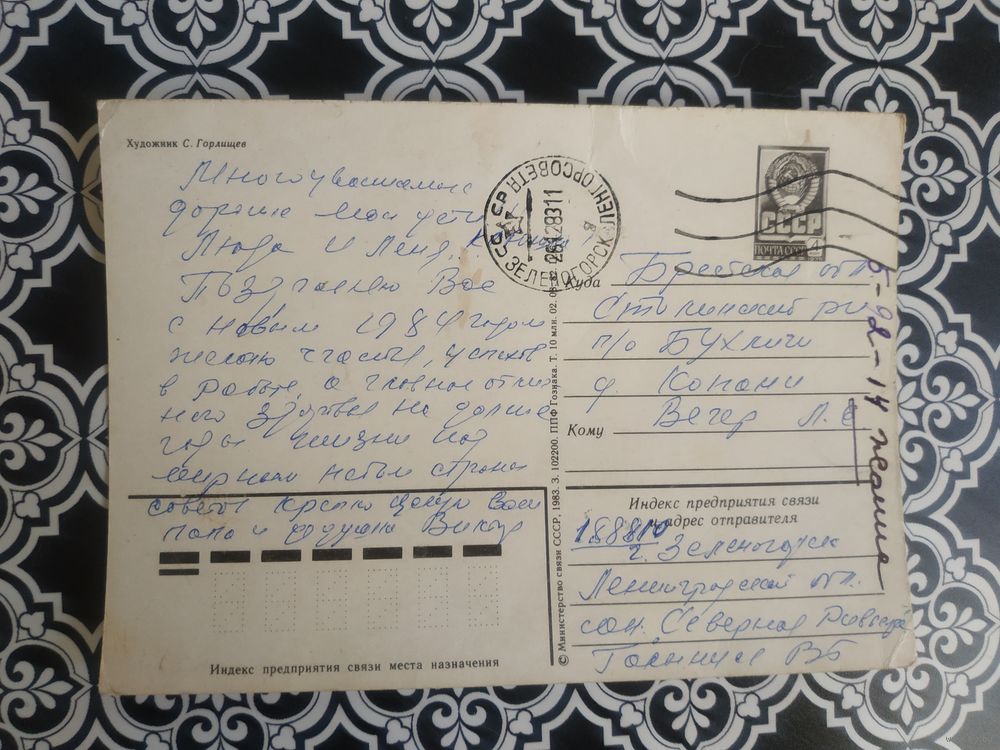 Художник С. Горлищев
Многоуважаемые
дорогие мои дети
Люда и Леня.
Поздравляю Вас
с новым 1984 годом
желаю счастья, успехов
в работе, а главное отлич
ного здоровья на долгие
годы жизни под
мирным небом страны
советов крепко целую Ваш
папа и дедушка Виктор
Индекс предприятия связи места назначения
СССР ЗЕЛЕНОГОРСК ЛЕНГОРСОВЕТА
СССР
ПОЧТА СССР 4
Куда Брестская обл.
Столинский р
п/о Бухличи
д. Копани
Кому Вечер Л.
5-98-14 Жанна
Индекс предприятия связи
и адрес отправителя
188810
г. Зеленогорск
Ленинградской обл.
сан. Северная Ривьера
© Министерство связи СССР, 1983. З. 102200. ППФ Гознака. Т. 10 млн. 02.08.